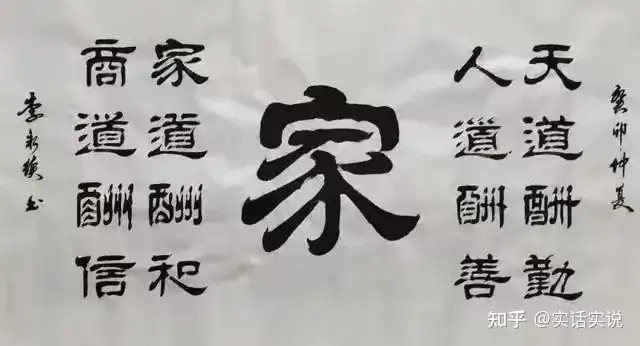 癸卯仲夏
天道酬勤
人道酬善
家
家道酬和
商道酬信
李永俊书
知乎 @实话实说